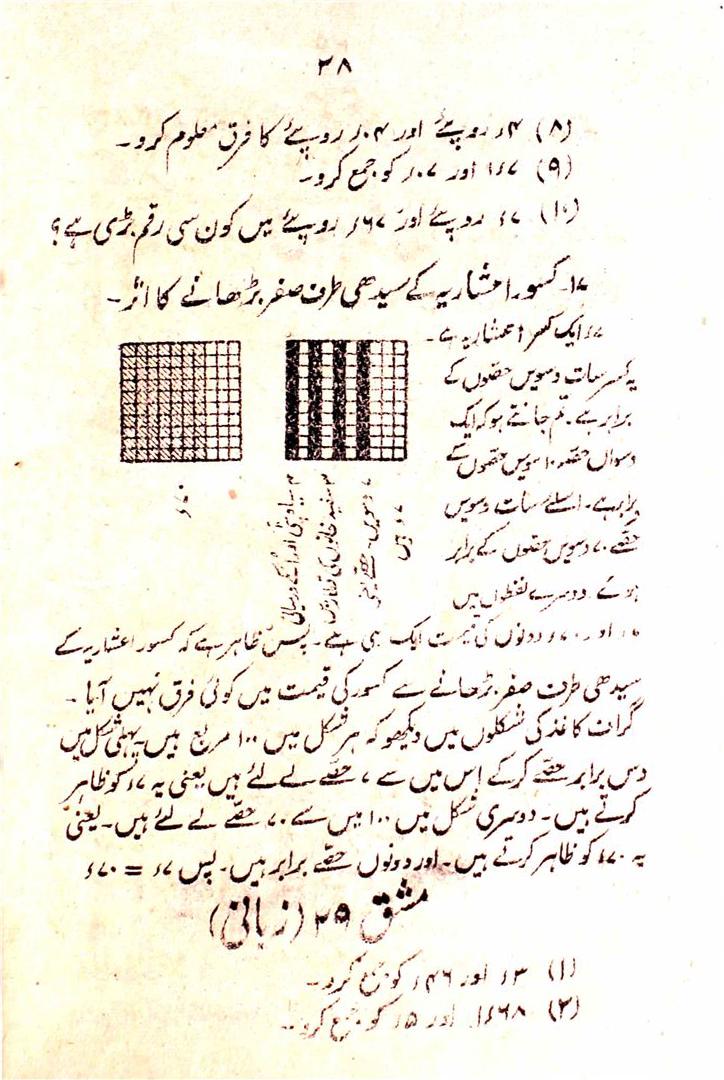 ۳۸
(۸) ۴ء روپئے اور ۰۴ء روپئے کا فرق معلوم کرو۔
(۹) ۷ء۱ اور ۰۷ء کو جمع کرو۔
(۱۰) ۷ء روپئے اور ۶۷ء روپئے میں کون سی رقم بڑی ہے؟
۱۷۔ کسور اعشاریہ کے سیدھی طرف صفر بڑھانے کا اثر۔
۷ء ایک کسر اعشاریہ ہے۔
یہ کسر سات دسویں حصّوں کے
برابر ہے۔ تم جانتے ہو کہ ایک
دسواں حصّہ ۱۰ سویں حصّوں کے
برابر ہے۔ اسلئے سات دسویں
حصّے ۷۰ سویں حصّوں کے برابر
ہوئے۔ دوسرے لفظوں میں
۷۰ء
۴ سیاہ پٹی اور انکے درمیانی
۳ سفید خانوں کی قطاریں
۷ دسویں حصّے یعنی
۷ء ہیں
۷ء اور ۷۰ء دونوں کی قیمت ایک ہی ہے۔ پس ظاہر ہے کہ کسور اعشاریہ کے
سیدھی طرف صفر بڑھانے سے کسور کی قیمت میں کوئی فرق نہیں آیا۔
گراف کاغذ کی شکلوں میں دیکھو کہ ہر شکل میں ۱۰۰ مربع ہیں۔ پہلی شکل میں
دس برابر حصّے کرکے اس میں سے ۷ حصّے لے لئے ہیں یعنی یہ ۷ء کو ظاہر
کرتے ہیں۔ دوسری شکل میں ۱۰۰ میں سے ۷۰ حصّے لے لئے ہیں۔ یعنی
یہ ۷۰ء کو ظاہر کرتے ہیں۔ اور دونوں حصّے برابر ہیں۔ پس ۷ء = ۷۰ء
مشق ۲۹ (زبانی)
(۱) ۳ء اور ۴۶ء کو جمع کرو۔
(۲) ۶۸ء۱ اور ۵ء کو جمع کرو۔